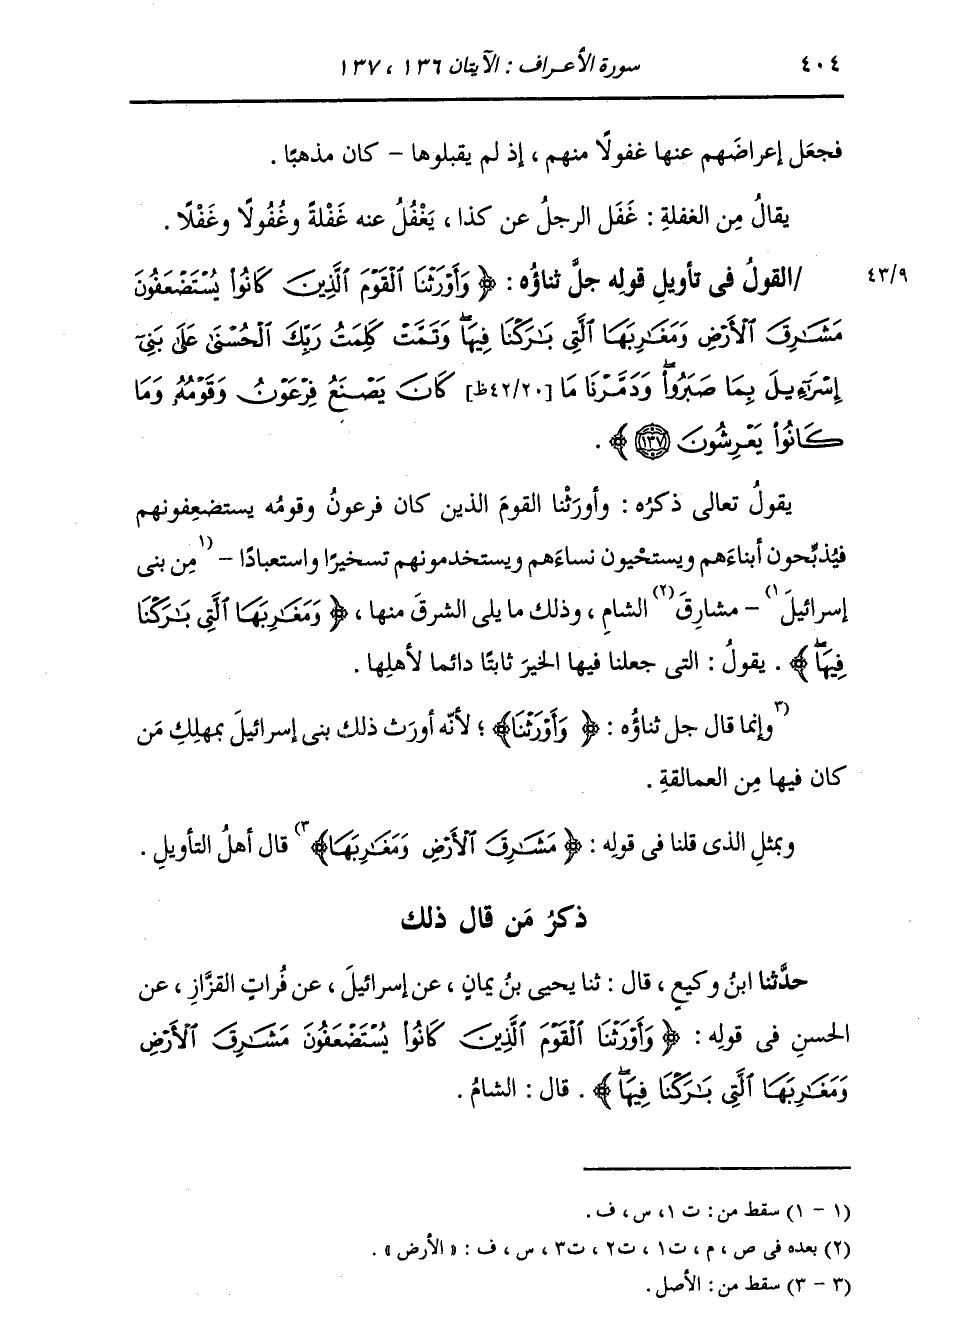 ٤٠٤ سورة الأعراف : الآيتان ١٣٦ ، ١٣٧
فجعَل إعراضَهم عنها غفولًا منهم ، إذ لم يقبلوها – كان مذهبًا .
يقالُ مِن الغفلةِ : غَفَل الرجلُ عن كذا ، يَغْفُلُ عنه غَفْلةً وغُفُولًا وغَفْلًا .
٤٣/٩ /القولُ فى تأويلِ قولِه جلَّ ثناؤُه : ﴿ وَأَوْرَثْنَا ٱلْقَوْمَ ٱلَّذِينَ كَانُوا۟ يُسْتَضْعَفُونَ
مَشَـٰرِقَ ٱلْأَرْضِ وَمَغَـٰرِبَهَا ٱلَّتِى بَـٰرَكْنَا فِيهَاۖ وَتَمَّتْ كَلِمَتُ رَبِّكَ ٱلْحُسْنَىٰ عَلَىٰ بَنِىٓ
إِسْرَٰٓءِيلَ بِمَا صَبَرُوا۟ۖ وَدَمَّرْنَا مَا [٤٢/٢٠ظ] كَانَ يَصْنَعُ فِرْعَوْنُ وَقَوْمُهُۥ وَمَا
كَانُوا۟ يَعْرِشُونَ ١٣٧ ﴾ .
يقولُ تعالى ذكرُه : وأورَثْنا القومَ الذين كان فرعونُ وقومُه يستضعِفونهم
فيُذبِّحون أبناءَهم ويستحْيون نساءَهم ويستخدمونهم تسخيرًا واستعبادًا – (١مِن بنى
إسرائيلَ١) – مشارِقَ(٢) الشامِ ، وذلك ما يلى الشرقَ منها ، ﴿ وَمَغَـٰرِبَهَا ٱلَّتِى بَـٰرَكْنَا
فِيهَاۖ ﴾ . يقولُ : التى جعلنا فيها الخيرَ ثابتًا دائما لأهلِها .
(٣وإنما قال جل ثناؤُه : ﴿ وَأَوْرَثْنَا﴾ ؛ لأنَّه أورَث ذلك بنى إسرائيلَ بمهلِكِ مَن
كان فيها مِن العمالقةِ .
وبمثلِ الذى قلنا فى قولِه : ﴿ مَشَـٰرِقَ ٱلْأَرْضِ وَمَغَـٰرِبَهَا﴾٣) قال أهلُ التأويلِ .
ذكرُ مَن قال ذلك
حدَّثنا ابنُ وكيعٍ ، قال : ثنا يحيى بنُ يمانٍ ، عن إسرائيلَ ، عن فُراتٍ القزَّازِ ، عن
الحسنِ فى قولِه : ﴿ وَأَوْرَثْنَا ٱلْقَوْمَ ٱلَّذِينَ كَانُوا۟ يُسْتَضْعَفُونَ مَشَـٰرِقَ ٱلْأَرْضِ
وَمَغَـٰرِبَهَا ٱلَّتِى بَـٰرَكْنَا فِيهَاۖ ﴾ . قال : الشامُ .
(١ – ١) سقط من : ت ١، س ، ف .
(٢) بعده فى ص ، م ، ت١ ، ت٢ ، ت٣ ، س ، ف : « الأرض » .
(٣ – ٣) سقط من : الأصل .